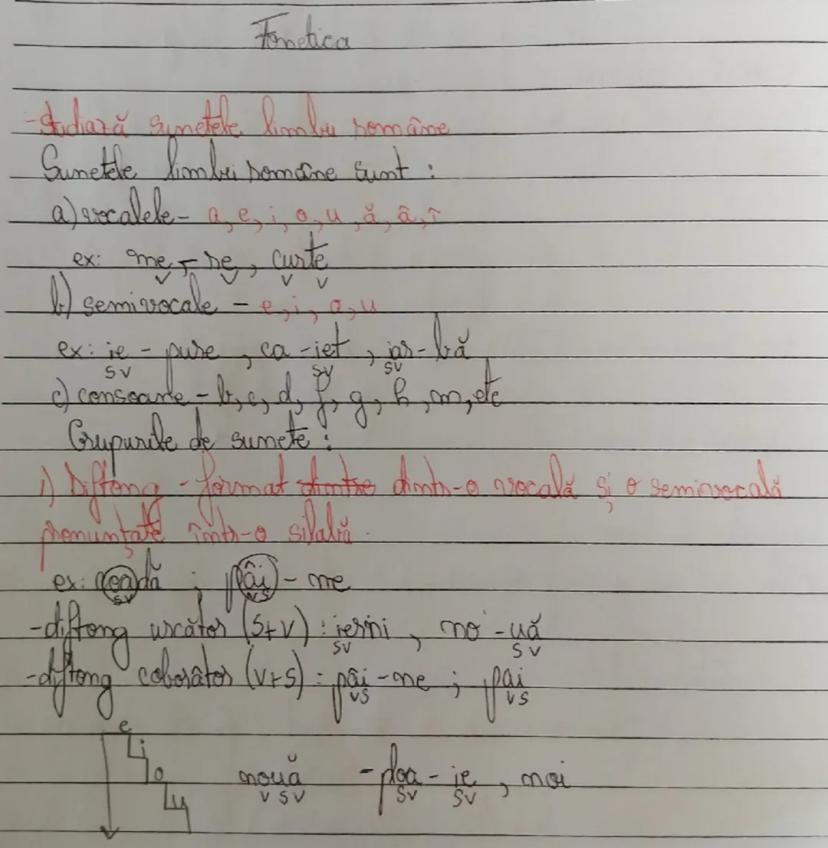 Fonetica
-Studiază sunetele limbii române
Sunetele limbii române sunt :
a) vocalele - a, e, i, o, u, ă, â, î
ex: me - re, curte
v v v v
b) semivocale - e, i, o, u
ex: ie - pure, ca - iet, iar - bă
sv sv sv
c) consoane - b, c, d, f, g, h, m, etc
Grupurile de sunete :
1) Diftong - format dintre dintr-o vocală și o semivocală
pronunțate într-o silabă.
ex: coadă ; pâi - ne
sv vs
-diftong urcător (S+V) : ierni, no - uă
sv sv
-diftong coborâtor (V+S) : pâi - ne ; pai
vs vs
e
i
o nouă - ploa - ie, noi
u v sv sv sv